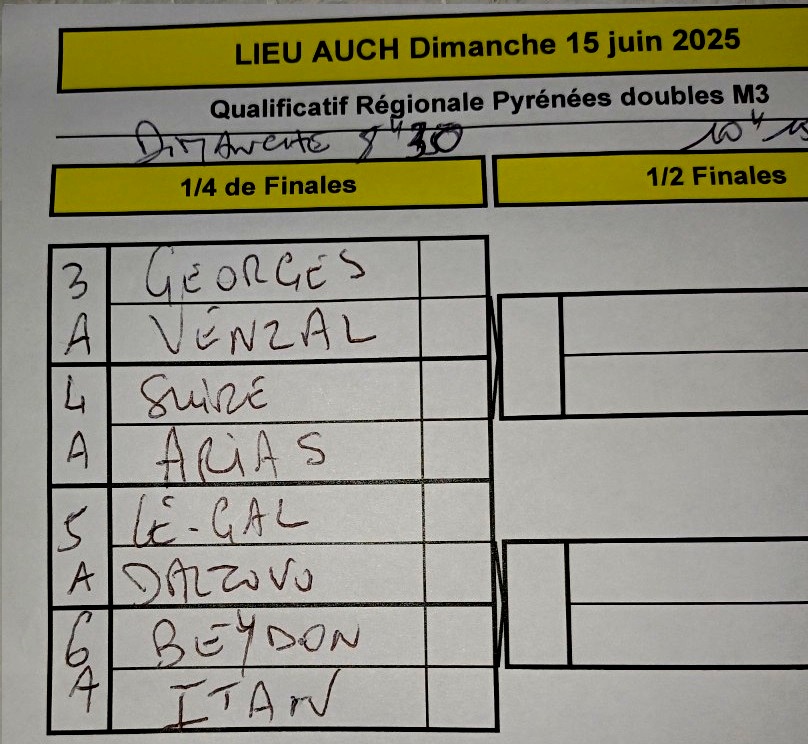 LIEU AUCH Dimanche 15 juin 2025
Qualificatif Régionale Pyrénées doubles M3
DIMANCHE 8H30 10H15
1/4 de Finales 1/2 Finales
3 GEORGES
A VENZAL
4 SUIRE
A ARIAS
5 LE-GAL
A DALZOVO
6 BEYDON
A ITAN